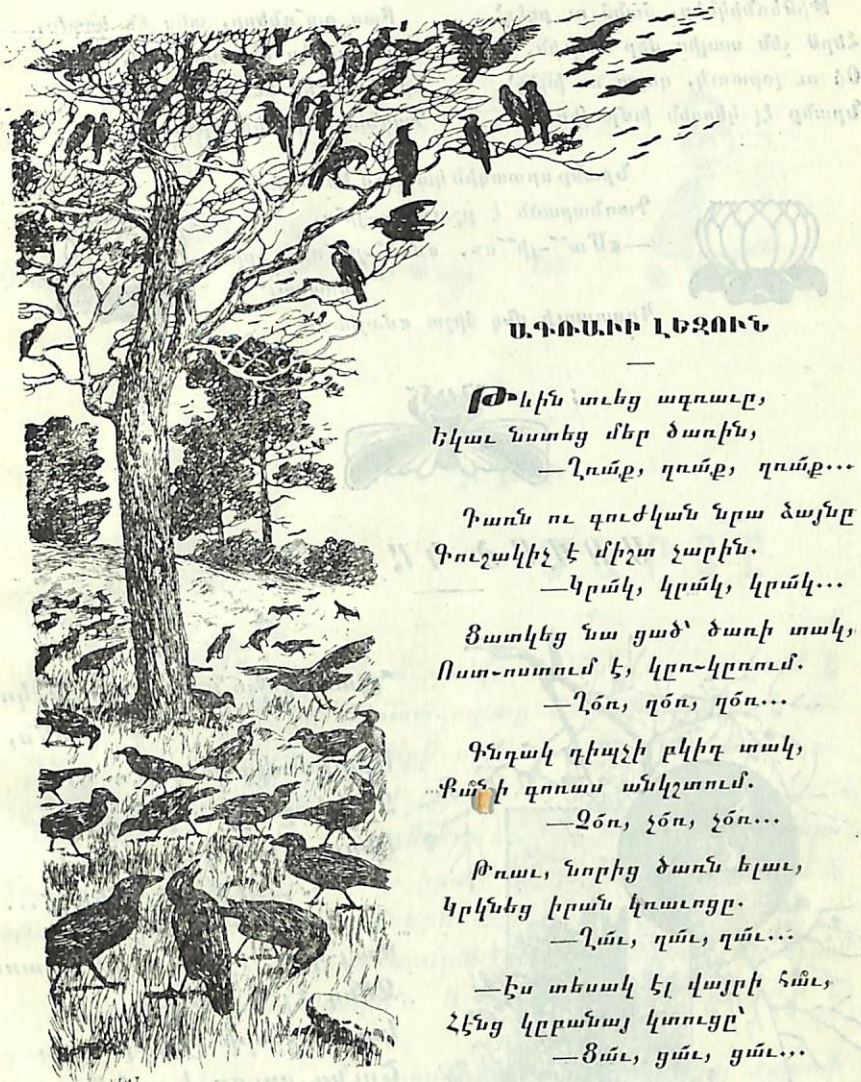 ԱԳՌԱՒԻ ԼԵԶՈՒՆ
Թևին տուեց ագռաւը,
Եկաւ նստեց մեր ծառին,
—Ղռա՛ք, ղռա՛ք, ղռա՛ք...
Դառն ու գուժկան նրա ձայնը
Գուշակիչ է միշտ չարին.
—Կրա՛կ, կրա՛կ, կրա՛կ...
Ցատկեց նա ցած՝ ծառի տակ,
Ոստ-ոստում է, կըռ-կըռում.
—Ղօ՛ռ, ղօ՛ռ, ղօ՛ռ...
Գնդակ դիպչի բկիդ տակ,
Քա՞նի գոռաս անկշտում.
—Չօ՛ռ, չօ՛ռ, չօ՛ռ...
Թռաւ, նորից ծառն ելաւ,
Կրկնեց իրան կռաւոցը.
—Ղա՛ւ, ղա՛ւ, ղա՛ւ...
—Էս տեսակ էլ վայրի հա՞ւ,
Հէնց կըբանայ կտուցը՝
—Ցա՛ւ, ցա՛ւ, ցա՛ւ...